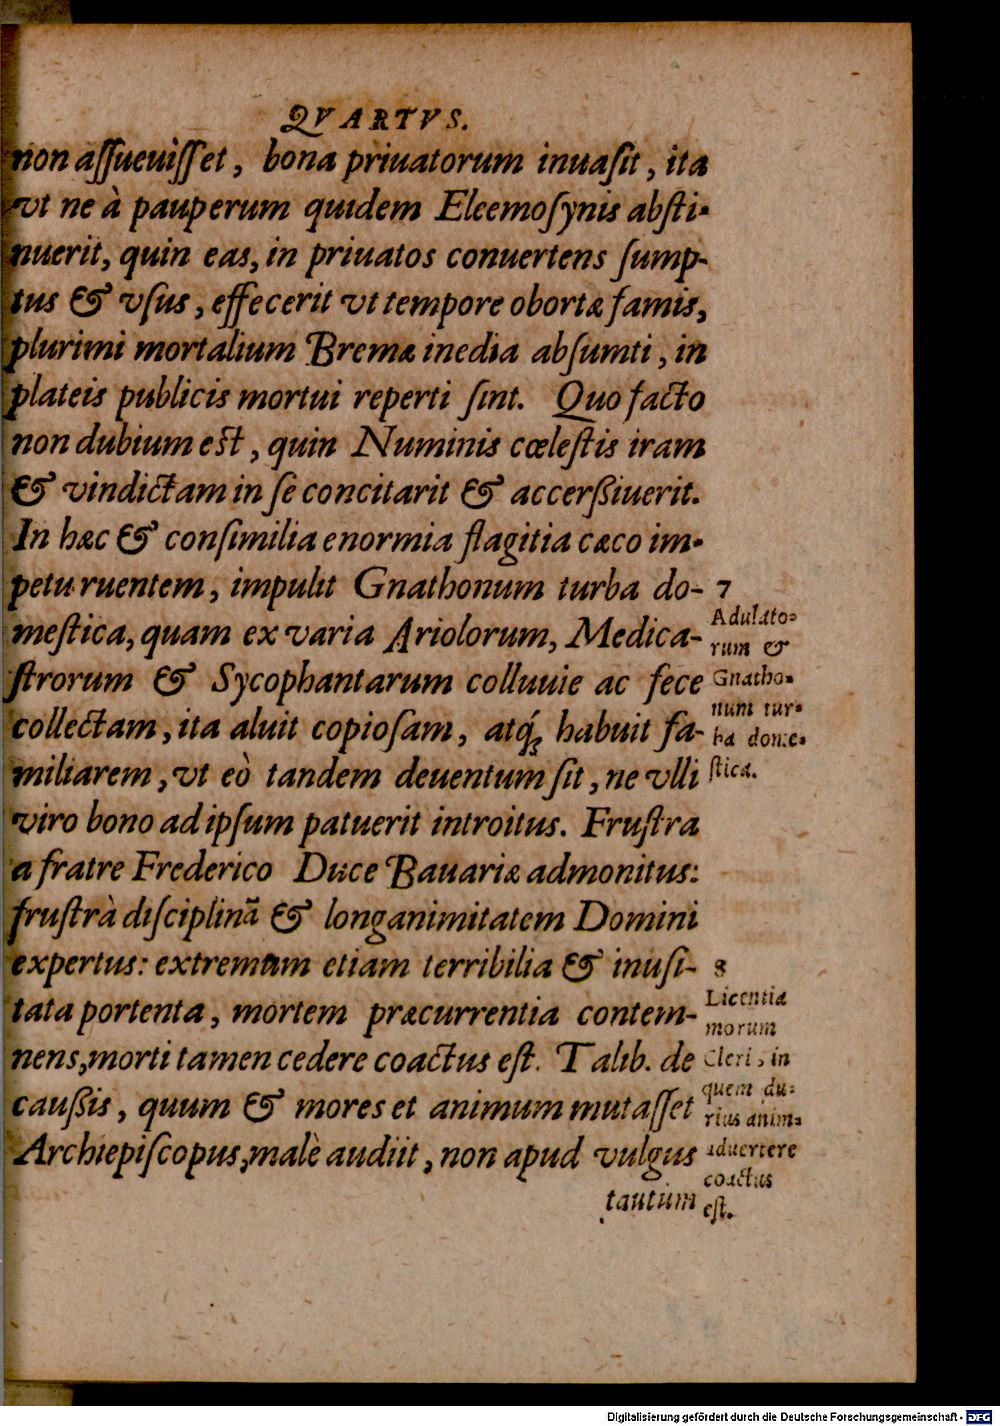 QVARTVS.
non aſſueuiſſet, bona priuatorum inuaſit, ita
vt ne à pauperum quidem Eleemoſynis abſti-
nuerit, quin eas, in priuatos conuertens ſump-
tus & vſus, effecerit vt tempore obortæ famis,
plurimi mortalium Bremæ inedia abſumti, in
plateis publicis mortui reperti ſint. Quo facto
non dubium eſt, quin Numinis cœleſtis iram
& vindictam in ſe concitarit & accerßiuerit.
In hæc & conſimilia enormia flagitia cæco im-
petu ruentem, impulit Gnathonum turba do-
meſtica, quam ex varia Ariolorum, Medica-
ſtrorum & Sycophantarum colluuie ac fece
collectam, ita aluit copioſam, atq́ꝫ habuit fa-
miliarem, vt eò tandem deuentum ſit, ne vlli
viro bono ad ipſum patuerit introitus. Fruſtra
a fratre Frederico Duce Bauariæ admonitus:
fruſtrà diſciplinā & longanimitatem Domini
expertus: extremum etiam terribilia & inuſi-
tata portenta, mortem præcurrentia contem-
nens, morti tamen cedere coactus eſt. Talib. de
caußis, quum & mores et animum mutaſſet
Archiepiſcopus, malè audiit, non apud vulgus
tautum
7
Adulato-
rum &
Gnatho-
num tur-
ba dome-
ſtica.
8
Licentia
morum
Cleri, in
quem du-
rius anim-
aduertere
coactus
eſt.
Digitalisierung gefördert durch die Deutsche Forschungsgemeinschaft - DFG